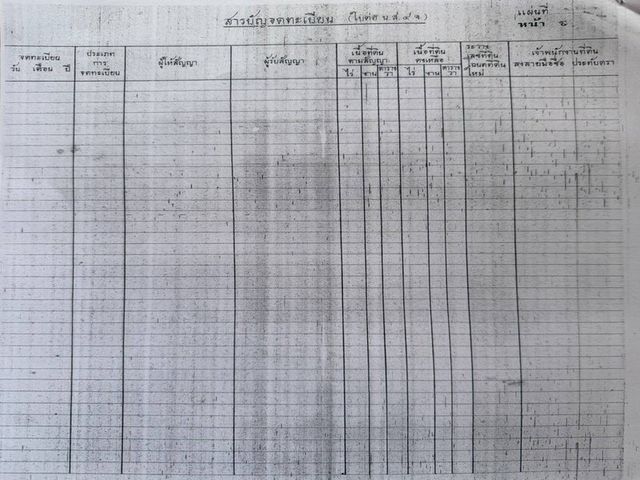 สารบัญจดทะเบียน (ใบต่อ น.ส.๔ จ.) แผ่นที่
หน้า
จดทะเบียน
วัน เดือน ปี
ประเภท
การ
จดทะเบียน
ผู้ให้สัญญา
ผู้รับสัญญา
เนื้อที่ดิน
ตามสัญญา
ไร่ งาน ตารางวา
เนื้อที่ดิน
คงเหลือ
ไร่ งาน ตารางวา
ระวาง
เลขที่ดิน
โฉนดที่ดิน
ใหม่
เจ้าพนักงานที่ดิน
ลงลายมือชื่อ ประทับตรา